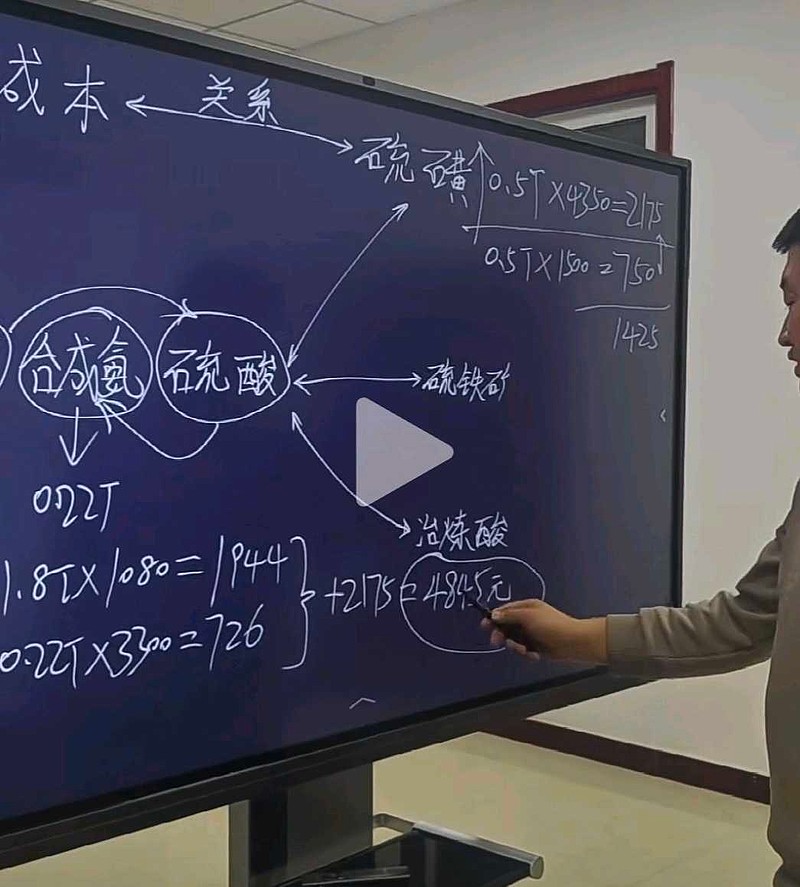 成本
关系
硫磺
0.5T×4350=2175
0.5T×1500=750
1425
合成氨
硫酸
硫铁矿
0.22T
冶炼酸
1.8T×1080=1944
+2175=4845元
0.22T×3300=726